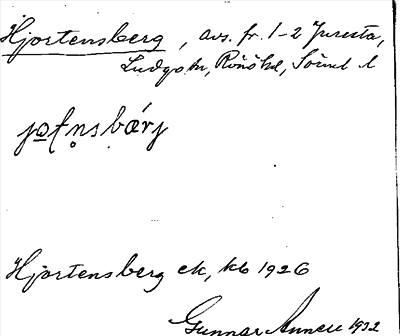 Hjortensberg, avs. fr. 1-2 Juresta,
Ludgo sn, Rönö hd, Söml l
jo̲ṭn̥sbærj
Hjortensberg ek, kb 1926
Gunnar Linnell 1932